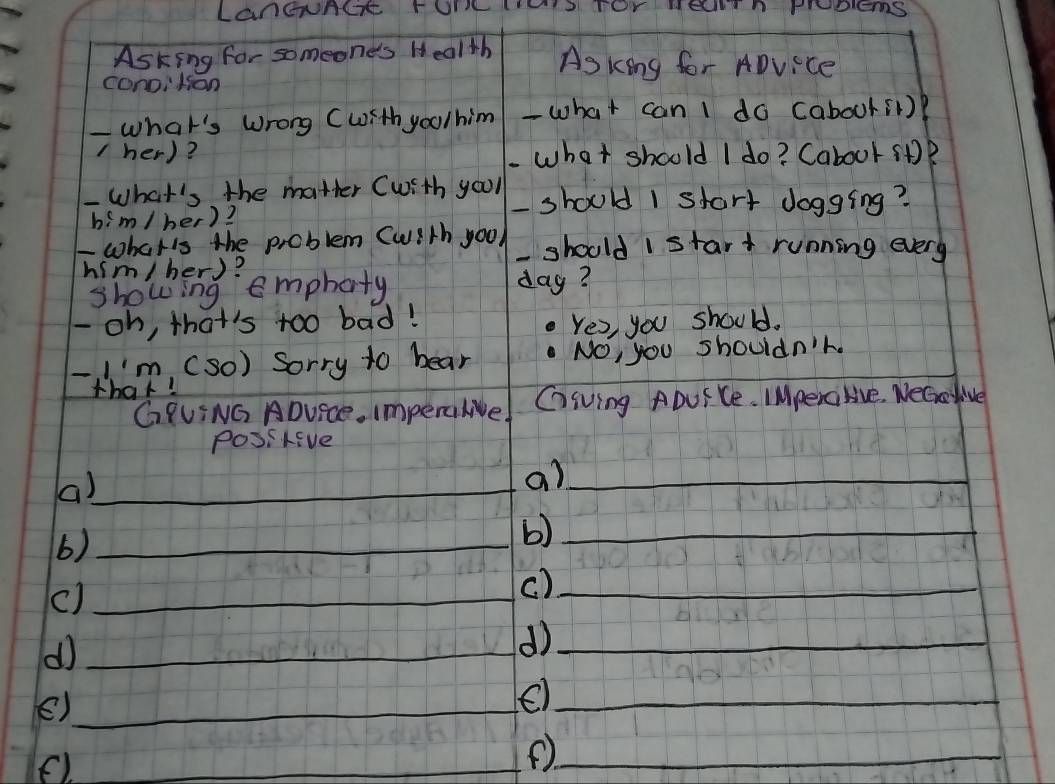 LanGuAGE Functions For Health Problems
Asking for someone's Health
condition
- what's wrong (with you/him
/ her)?
- what's the matter (with you/
him/her)?
- what's the problem (with you/
him/her)?
showing emphaty
- oh, that's too bad!
- I'm (so) sorry to hear
that!
GIVING ADVICE. Imperative
Positive
a)
b)
c)
d)
e)
f)
Asking for ADVICE
- what can I do (about it)?
- what should I do? (about it)?
- should I start Jogging?
- should I start running every
day?
• Yes, you should.
• No, you shouldn't.
Giving ADVICE. IMperative. Negative
a)
b)
c)
d)
e)
f)